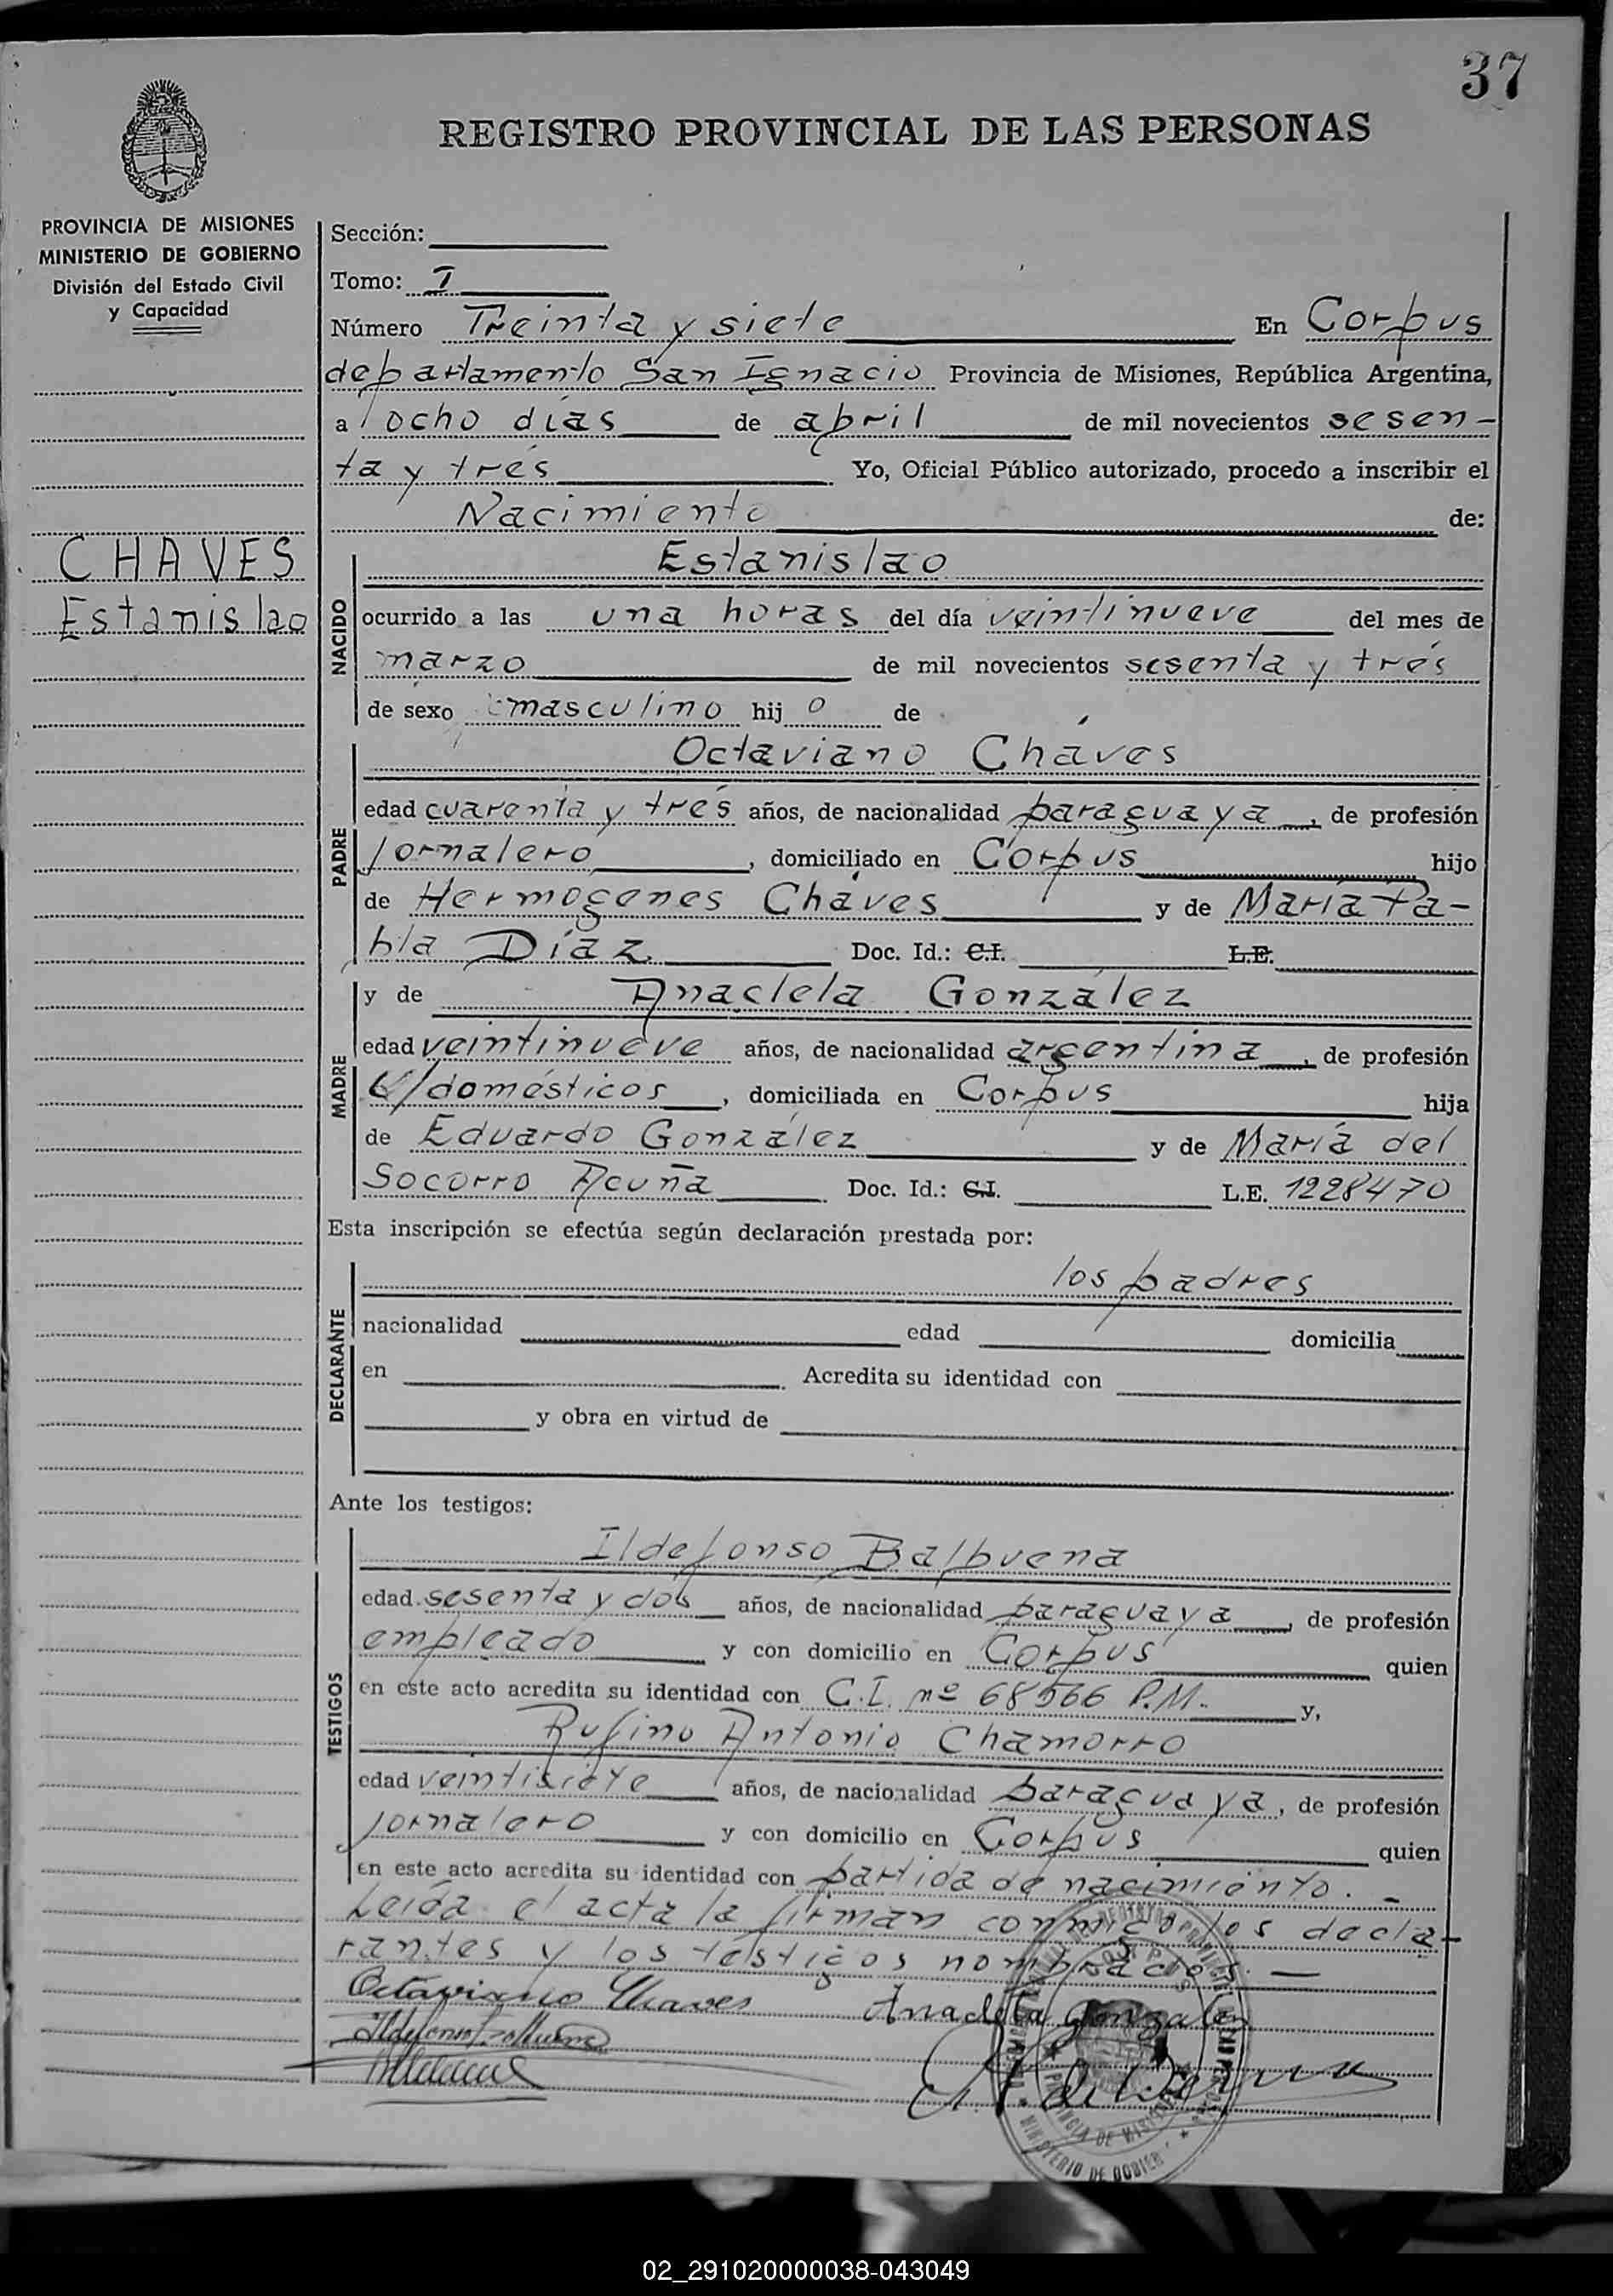 37
REGISTRO PROVINCIAL DE LAS PERSONAS
PROVINCIA DE MISIONES
MINISTERIO DE GOBIERNO
División del Estado Civil
y Capacidad
CHAVES
Estanislao
Sección:
Tomo: I
Número Treinta y siete En Corpus
departamento San Ignacio Provincia de Misiones, República Argentina,
a ocho días de abril de mil novecientos sesen-
ta y tres Yo, Oficial Público autorizado, procedo a inscribir el
Nacimiento de:
NACIDO
Estanislao
ocurrido a las una horas del día veintinueve del mes de
marzo de mil novecientos sesenta y tres
de sexo masculino hij o de
PADRE
Octaviano Chaves
edad cuarenta y tres años, de nacionalidad paraguaya, de profesión
jornalero, domiciliado en Corpus hijo
de Hermogenes Chaves y de María Pa-
bla Díaz Doc. Id.: C.I. L.E.
MADRE
y de Anacleta González
edad veintinueve años, de nacionalidad argentina, de profesión
Q/domésticos, domiciliada en Corpus hija
de Eduardo González y de María del
Socorro Acuña Doc. Id.: C.I. L.E. 1228470
Esta inscripción se efectúa según declaración prestada por:
DECLARANTE
los padres
nacionalidad edad domicilia
en Acredita su identidad con
y obra en virtud de
Ante los testigos:
TESTIGOS
Ildefonso Balbuena
edad sesenta y dos años, de nacionalidad paraguaya, de profesión
empleado y con domicilio en Corpus quien
en este acto acredita su identidad con C.I. nº 68566 P.M. y,
Rufino Antonio Chamorro
edad veintisiete años, de nacionalidad paraguaya, de profesión
jornalero y con domicilio en Corpus quien
en este acto acredita su identidad con partida de nacimiento. -
Leída el acta la firman conmigo los decla-
rantes y los testigos nombrados. —
Octaviano Chaves Anacleta Gonzalez
Ildefonso Balbuena
PROVINCIA DE MISIONES
MINISTERIO DE GOBIER
02_291020000038-043049